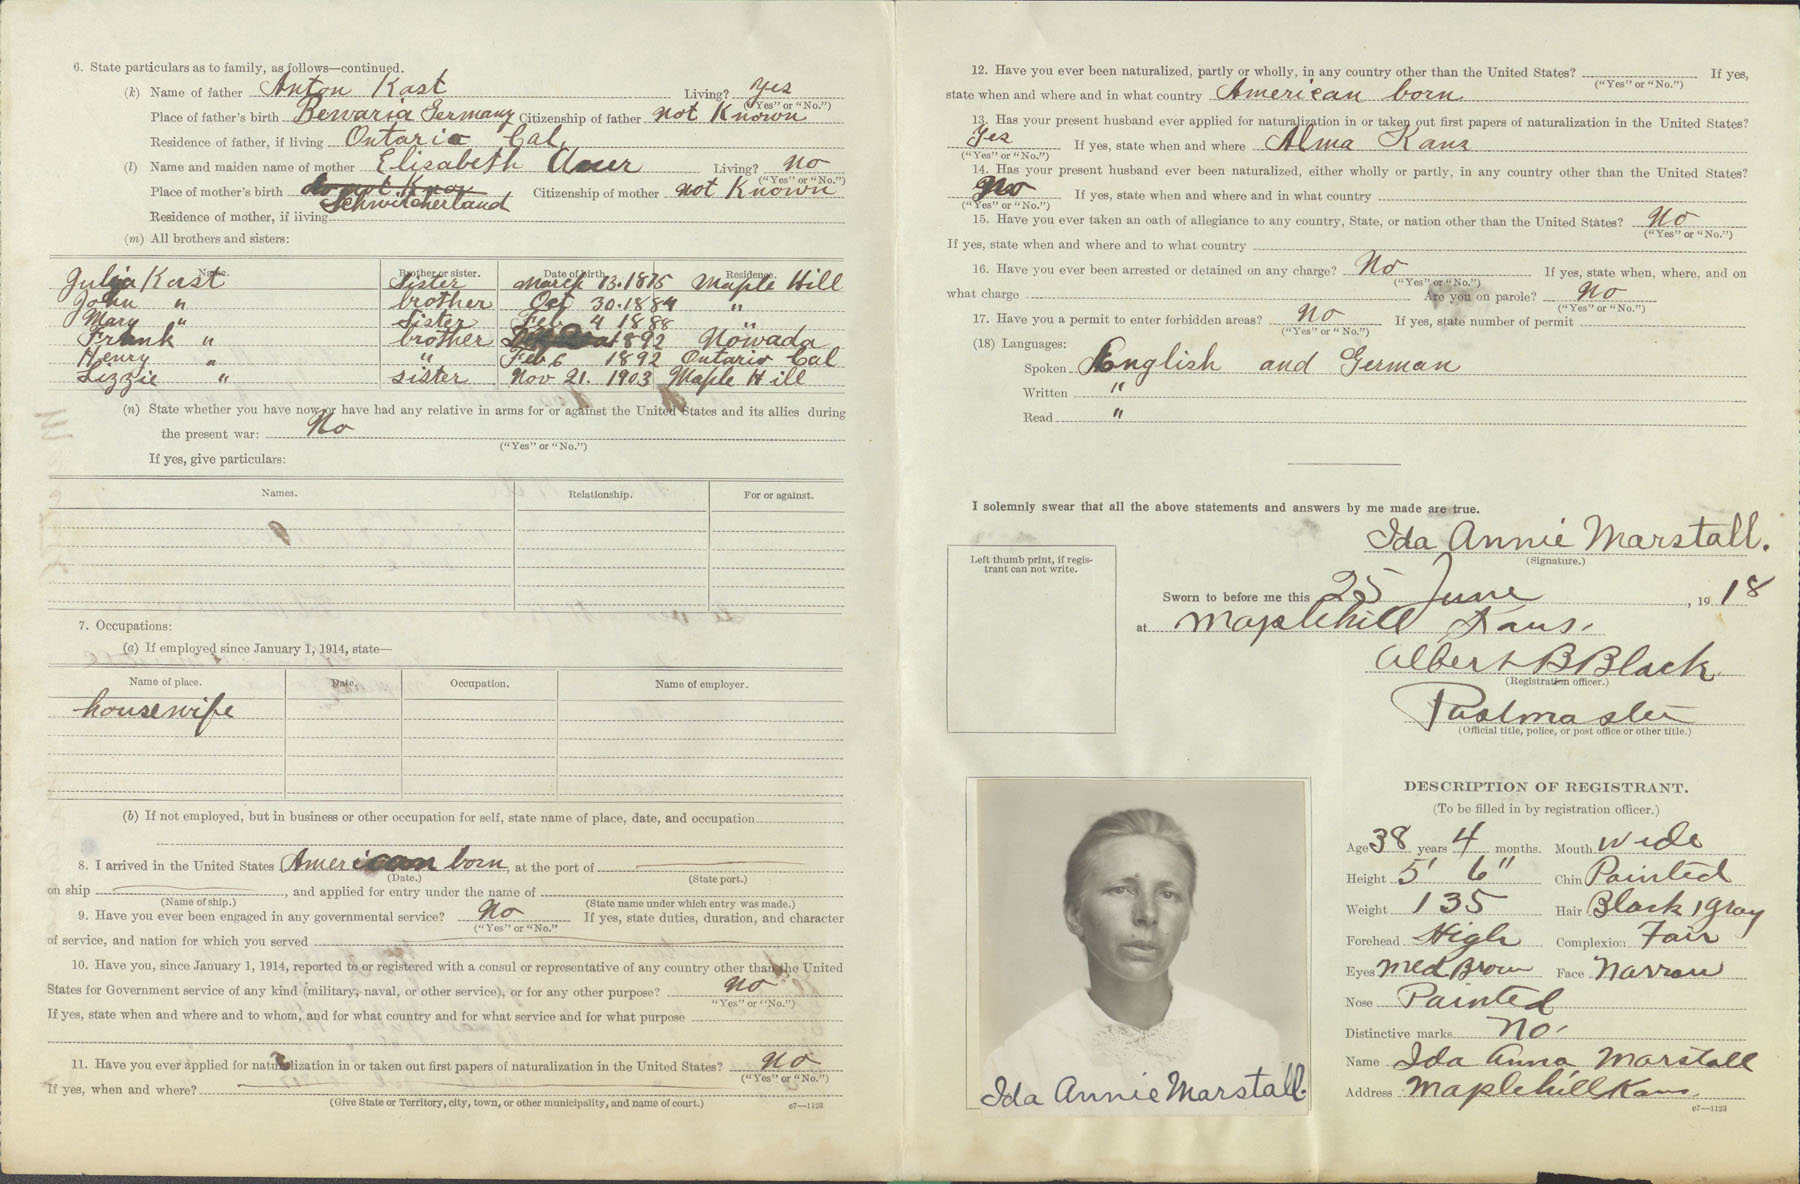 6. State particulars as to family, as follows—continued.
(k) Name of father Anton Kast Living? yes
("Yes" or "No.")
Place of father's birth Bewaria Germany Citizenship of father not Known
Residence of father, if living Ontario Cal.
(l) Name and maiden name of mother Elisabeth Auer Living? no
("Yes" or "No.")
Place of mother's birth do not Know Citizenship of mother not Known
Schwitcherland
Residence of mother, if living
(m) All brothers and sisters:
Name. Brother or sister. Date of birth. Residence.
Julia Kast Sister March 13. 1875 Maple Hill
John " brother Oct 30. 1884 "
Mary " Sister Feb 4 1888 "
Frank " brother 1892 Nowada
Henry " " Feb 6 1892 Ontario Cal
Lizzie " sister Nov 21. 1903 Maple Hill
(n) State whether you have now or have had any relative in arms for or against the United States and its allies during
the present war: No
("Yes" or "No.")
If yes, give particulars:
Names. Relationship. For or against.
7. Occupations:
(a) If employed since January 1, 1914, state—
Name of place. Date. Occupation. Name of employer.
housewife
(b) If not employed, but in business or other occupation for self, state name of place, date, and occupation
8. I arrived in the United States American born, at the port of
(Date.) (State port.)
on ship , and applied for entry under the name of
(Name of ship.) (State name under which entry was made.)
9. Have you ever been engaged in any governmental service? No If yes, state duties, duration, and character
("Yes" or "No."
of service, and nation for which you served
10. Have you, since January 1, 1914, reported to or registered with a consul or representative of any country other than the United
States for Government service of any kind (military, naval, or other service), or for any other purpose? no
"Yes" or "No.")
If yes, state when and where and to whom, and for what country and for what service and for what purpose
11. Have you ever applied for naturalization in or taken out first papers of naturalization in the United States? No
("Yes" or "No.")
If yes, when and where?
(Give State or Territory, city, town, or other municipality, and name of court.)
c7—1123
12. Have you ever been naturalized, partly or wholly, in any country other than the United States? If yes,
("Yes" or "No.")
state when and where and in what country American born
13. Has your present husband ever applied for naturalization in or taken out first papers of naturalization in the United States?
Yes If yes, state when and where Alma Kans
("Yes" or "No.")
14. Has your present husband ever been naturalized, either wholly or partly, in any country other than the United States?
No If yes, state when and where and in what country
("Yes" or "No.")
15. Have you ever taken an oath of allegiance to any country, State, or nation other than the United States? No
("Yes" or "No.")
If yes, state when and where and to what country
16. Have you ever been arrested or detained on any charge? No If yes, state when, where, and on
("Yes" or "No.")
what charge Are you on parole? no
("Yes" or "No.")
17. Have you a permit to enter forbidden areas? No If yes, state number of permit
("Yes" or "No.")
(18) Languages:
Spoken English and German
Written "
Read "
I solemnly swear that all the above statements and answers by me made are true.
Ida Annie Marstall.
(Signature.)
Left thumb print, if regis-
trant can not write.
Sworn to before me this 25 June , 1918
at Maplehill Kans.
Albert B Black
(Registration officer.)
Postmaster
(Official title, police, or post office or other title.)
DESCRIPTION OF REGISTRANT.
(To be filled in by registration officer.)
Age 38 years 4 months. Mouth Wide
Height 5' 6" Chin Pointed
Weight 135 Hair Black, gray
Forehead High Complexion Fair
Eyes Med Brown Face Narrow
Nose Pointed
Distinctive marks No.
Name Ida Anna Marstall
Address Maplehill Kans.
c7—1123
Ida Annie Marstall.